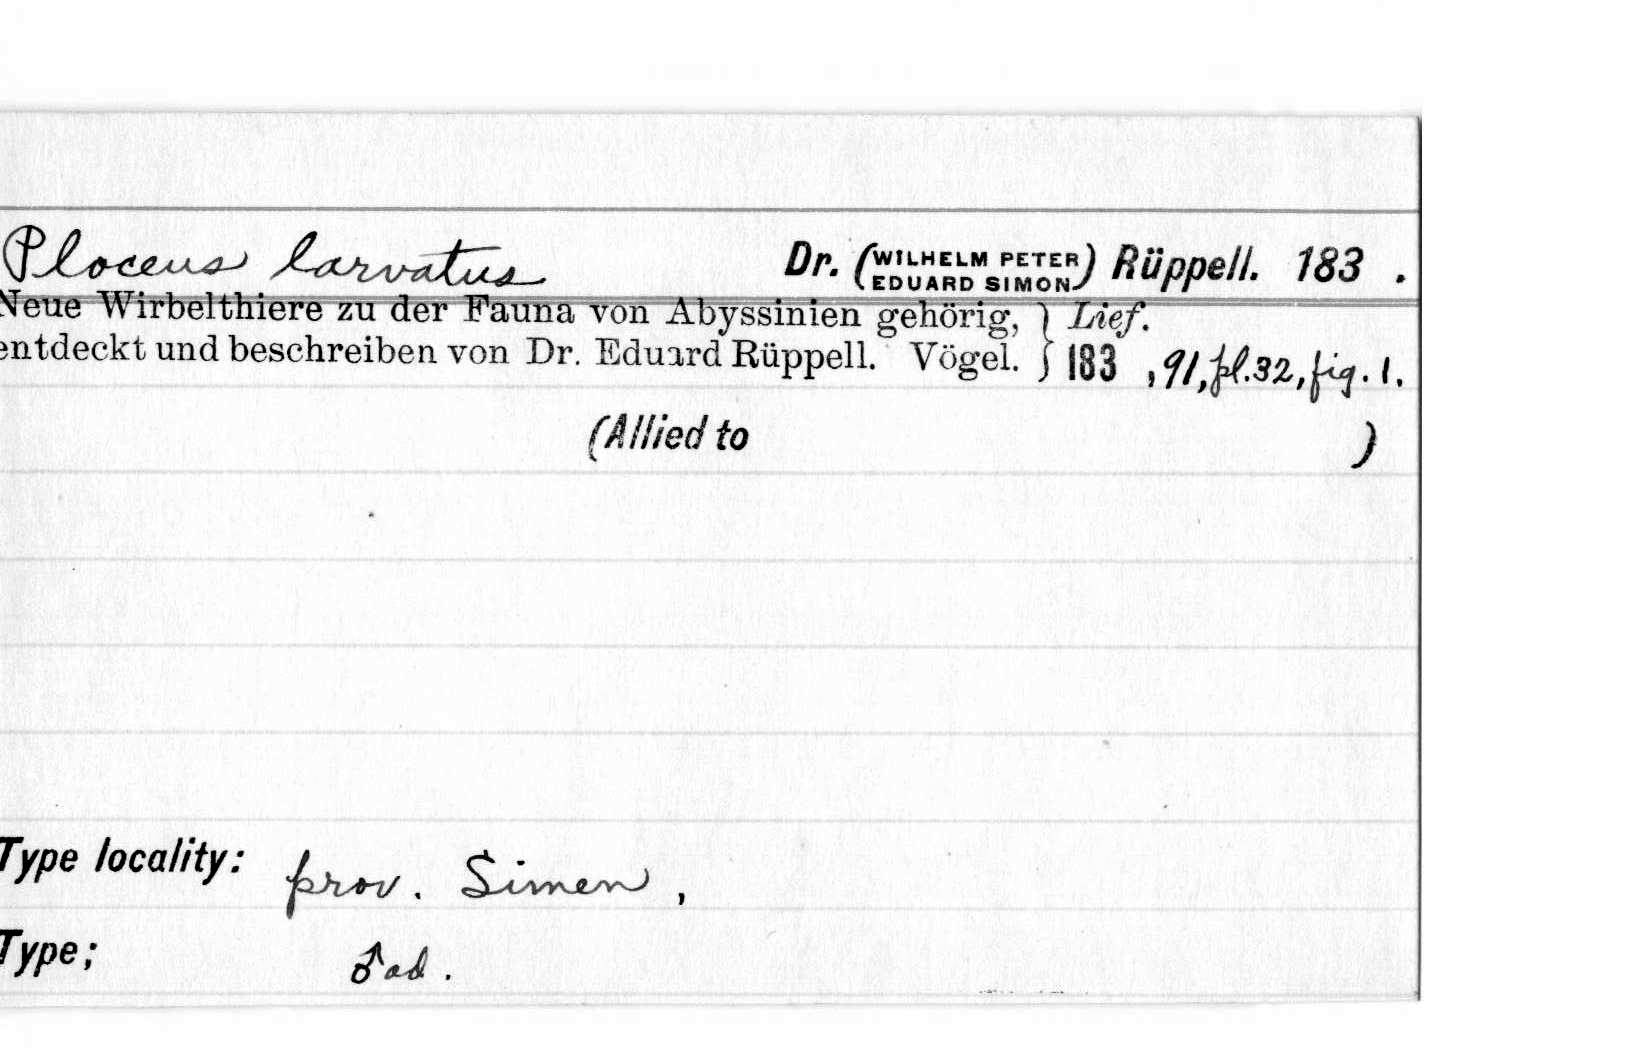 Ploceus larvatus Dr. (WILHELM PETER EDUARD SIMON) Rüppell. 183 .
Neue Wirbelthiere zu der Fauna von Abyssinien gehörig, } Lief.
entdeckt und beschreiben von Dr. Eduard Rüppell. Vögel. } 183 , 91, pl. 32, fig. 1.
(Allied to )
Type locality: prov. Simen ,
Type; ♂ ad .